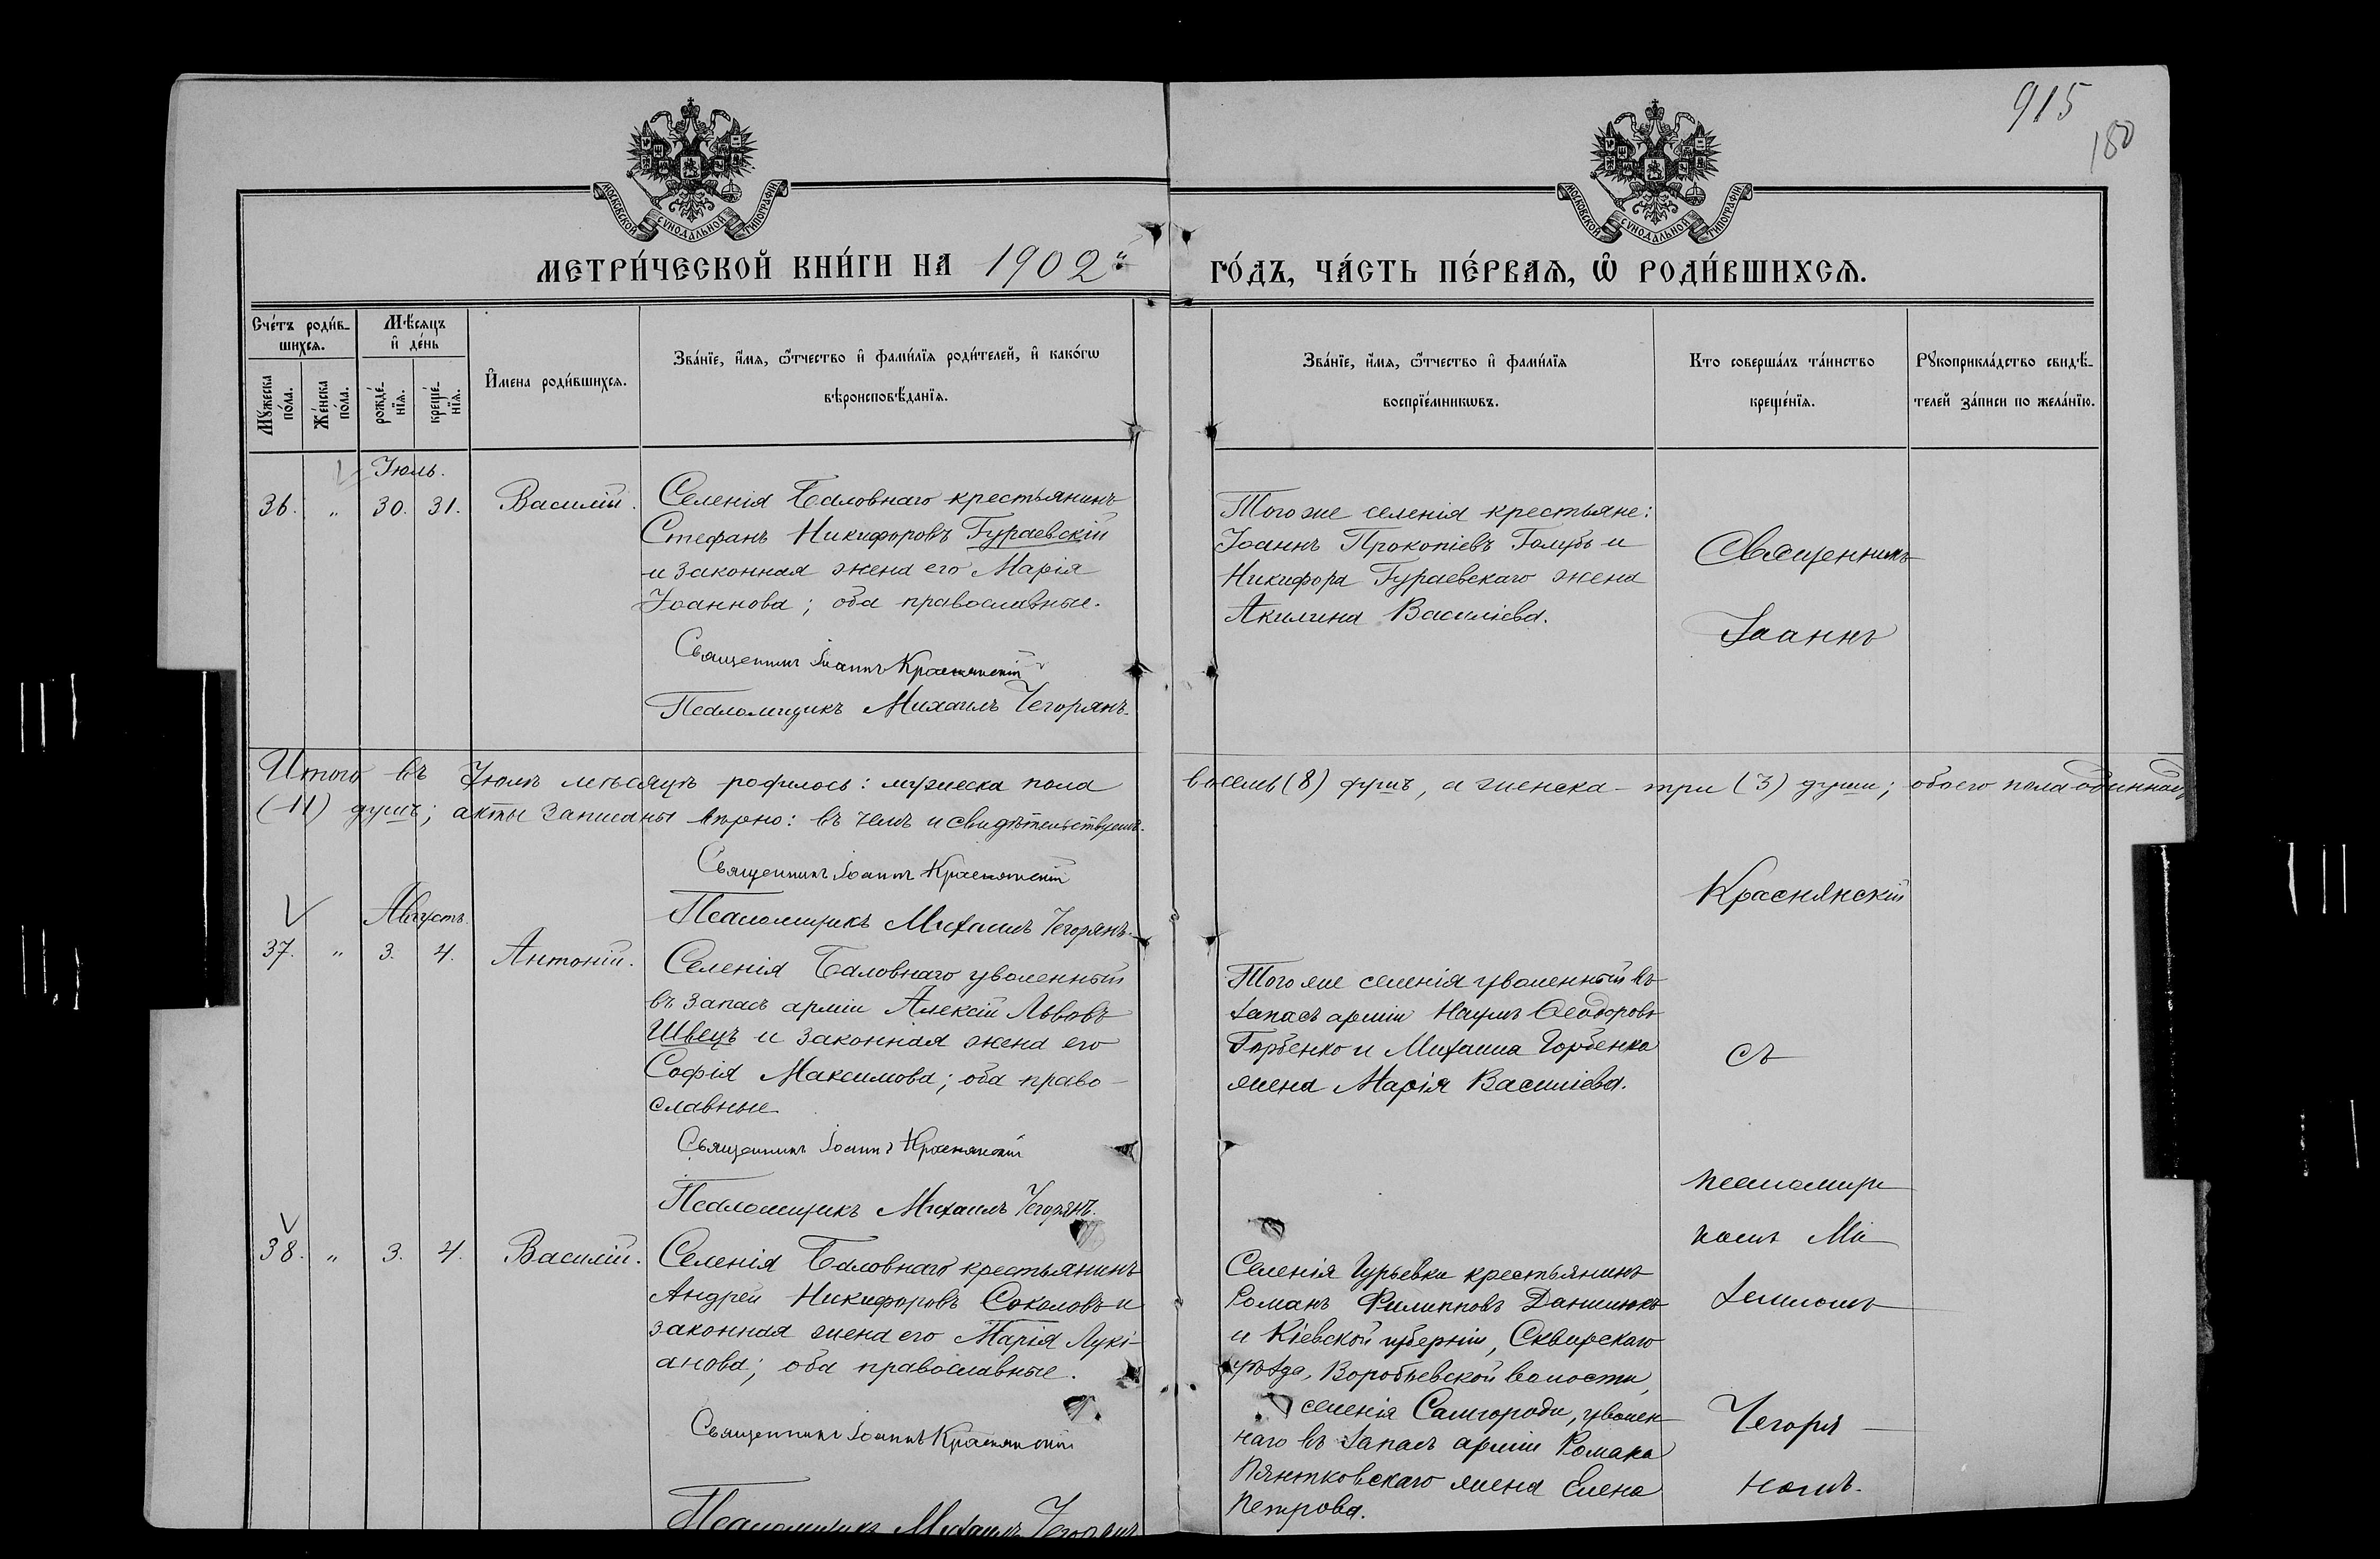 915
180
МОСКОВСКОЙ СѴНОДАЛЬНОЙ ТИПОГРАФІИ
МОСКОВСКОЙ СѴНОДАЛЬНОЙ ТИПОГРАФІИ
МЕТРИ́ЧЕСКОЙ КНИ́ГИ НА 1902й
ГО́ДЪ, ЧА́СТЬ ПЕ́РВАѦ, Ѽ РОДИ́ВШИХСѦ.
Сче́тъ роди́в-
шихсѧ.
Мꙋ́жеска
по́ла.
Же́нска
по́ла.
Мѣ́сѧцъ
и҆ де́нь
рожде́-
нїѧ.
креще́-
нїѧ.
И҆мена роди́вшихсѧ.
Зва́нїе, и҆́мѧ, ѻ҆́тчество и҆ фами́лїѧ роди́телей, и҆ како́гѡ
вѣроисповѣ́данїѧ.
Зва́нїе, и҆́мѧ, ѻ҆́тчество и҆ фами́лїѧ
воспрїе́мникѡвъ.
Кто соверша́лъ та́инство
креще́нїѧ.
Рꙋкоприкла́дство свидѣ́-
телей за́писи по жела́нїю.
Іюль.
36. " 30. 31. Василій.
Селенія Баловнаго крестьянинъ
Стефанъ Никифоровъ Гураевскій
и законная жена его Марія
Іоаннова; оба православные.
Священникъ Іоаннъ Краснянскій
Псаломщикъ Михаилъ Чегорянъ.
Того же селенія крестьяне:
Іоаннъ Прокопіевъ Голубъ и
Никифора Гураевскаго жена
Акилина Василіева.
Священникъ
Іоаннъ
Итого въ Іюлѣ мѣсяцѣ родилось: мужеска пола восемь (8) душъ, а женска - три (3) души; обоего пола одиннадц
(11) душъ; акты записаны вѣрно: въ чемъ и свидѣтельствуемъ.
Священникъ Іоаннъ Краснянскій
Псаломщикъ Михаилъ Чегорянъ.
Краснянскій
Августъ.
37. " 3. 4. Антоній.
Селенія Баловнаго уволенный
въ запасъ арміи Алексій Львовъ
Швецъ и законная жена его
Софія Максимова; оба право-
славные.
Священникъ Іоаннъ Краснянскій
Псаломщикъ Михаилъ Чегорянъ.
Того же селенія уволенный въ
запасъ арміи Наумъ Ѳеодоровъ
Горбенко и Михаила Горбенка
жена Марія Василіева.
съ
псаломщи
комъ Ми
хаиломъ
38. " 3. 4. Василій.
Селенія Баловнаго крестьянинъ
Андрей Никифоровъ Соколовъ и
законная жена его Марія Лукі-
анова; оба православные.
Священникъ Іоаннъ Краснянскій
Псаломщикъ Михаилъ Чегорянъ
Селенія Гурьевки крестьянинъ
Романъ Филипповъ Данилюкъ
и Кіевской губерніи, Сквирскаго
уѣзда, Воробьевской волости,
селенія Самгороди, уволен-
наго въ запасъ арміи Романа
Пянтковскаго жена Елена
Петрова.
Чегоря
номъ.